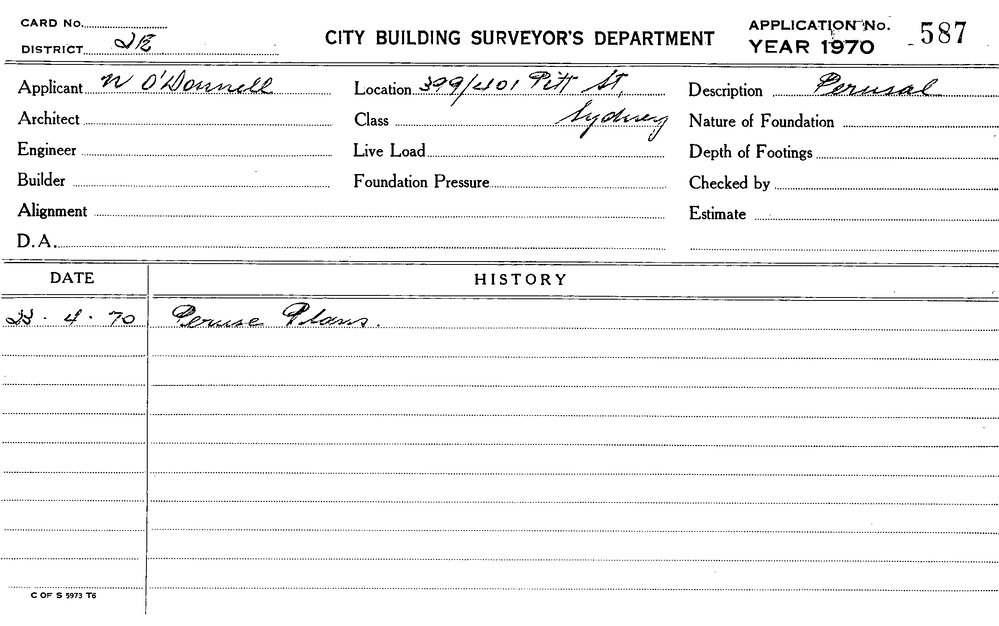 CARD No.
DISTRICT 2E
CITY BUILDING SURVEYOR'S DEPARTMENT
APPLICATION No. 587
YEAR 1970
Applicant N O'Donnell
Location 399/401 Pitt St,
Description Perusal
Architect
Class Sydney
Nature of Foundation
Engineer
Live Load
Depth of Footings
Builder
Foundation Pressure
Checked by
Alignment
Estimate
D.A.
DATE HISTORY
23 . 4 . 70 Peruse Plans.
C OF S 5973 T6